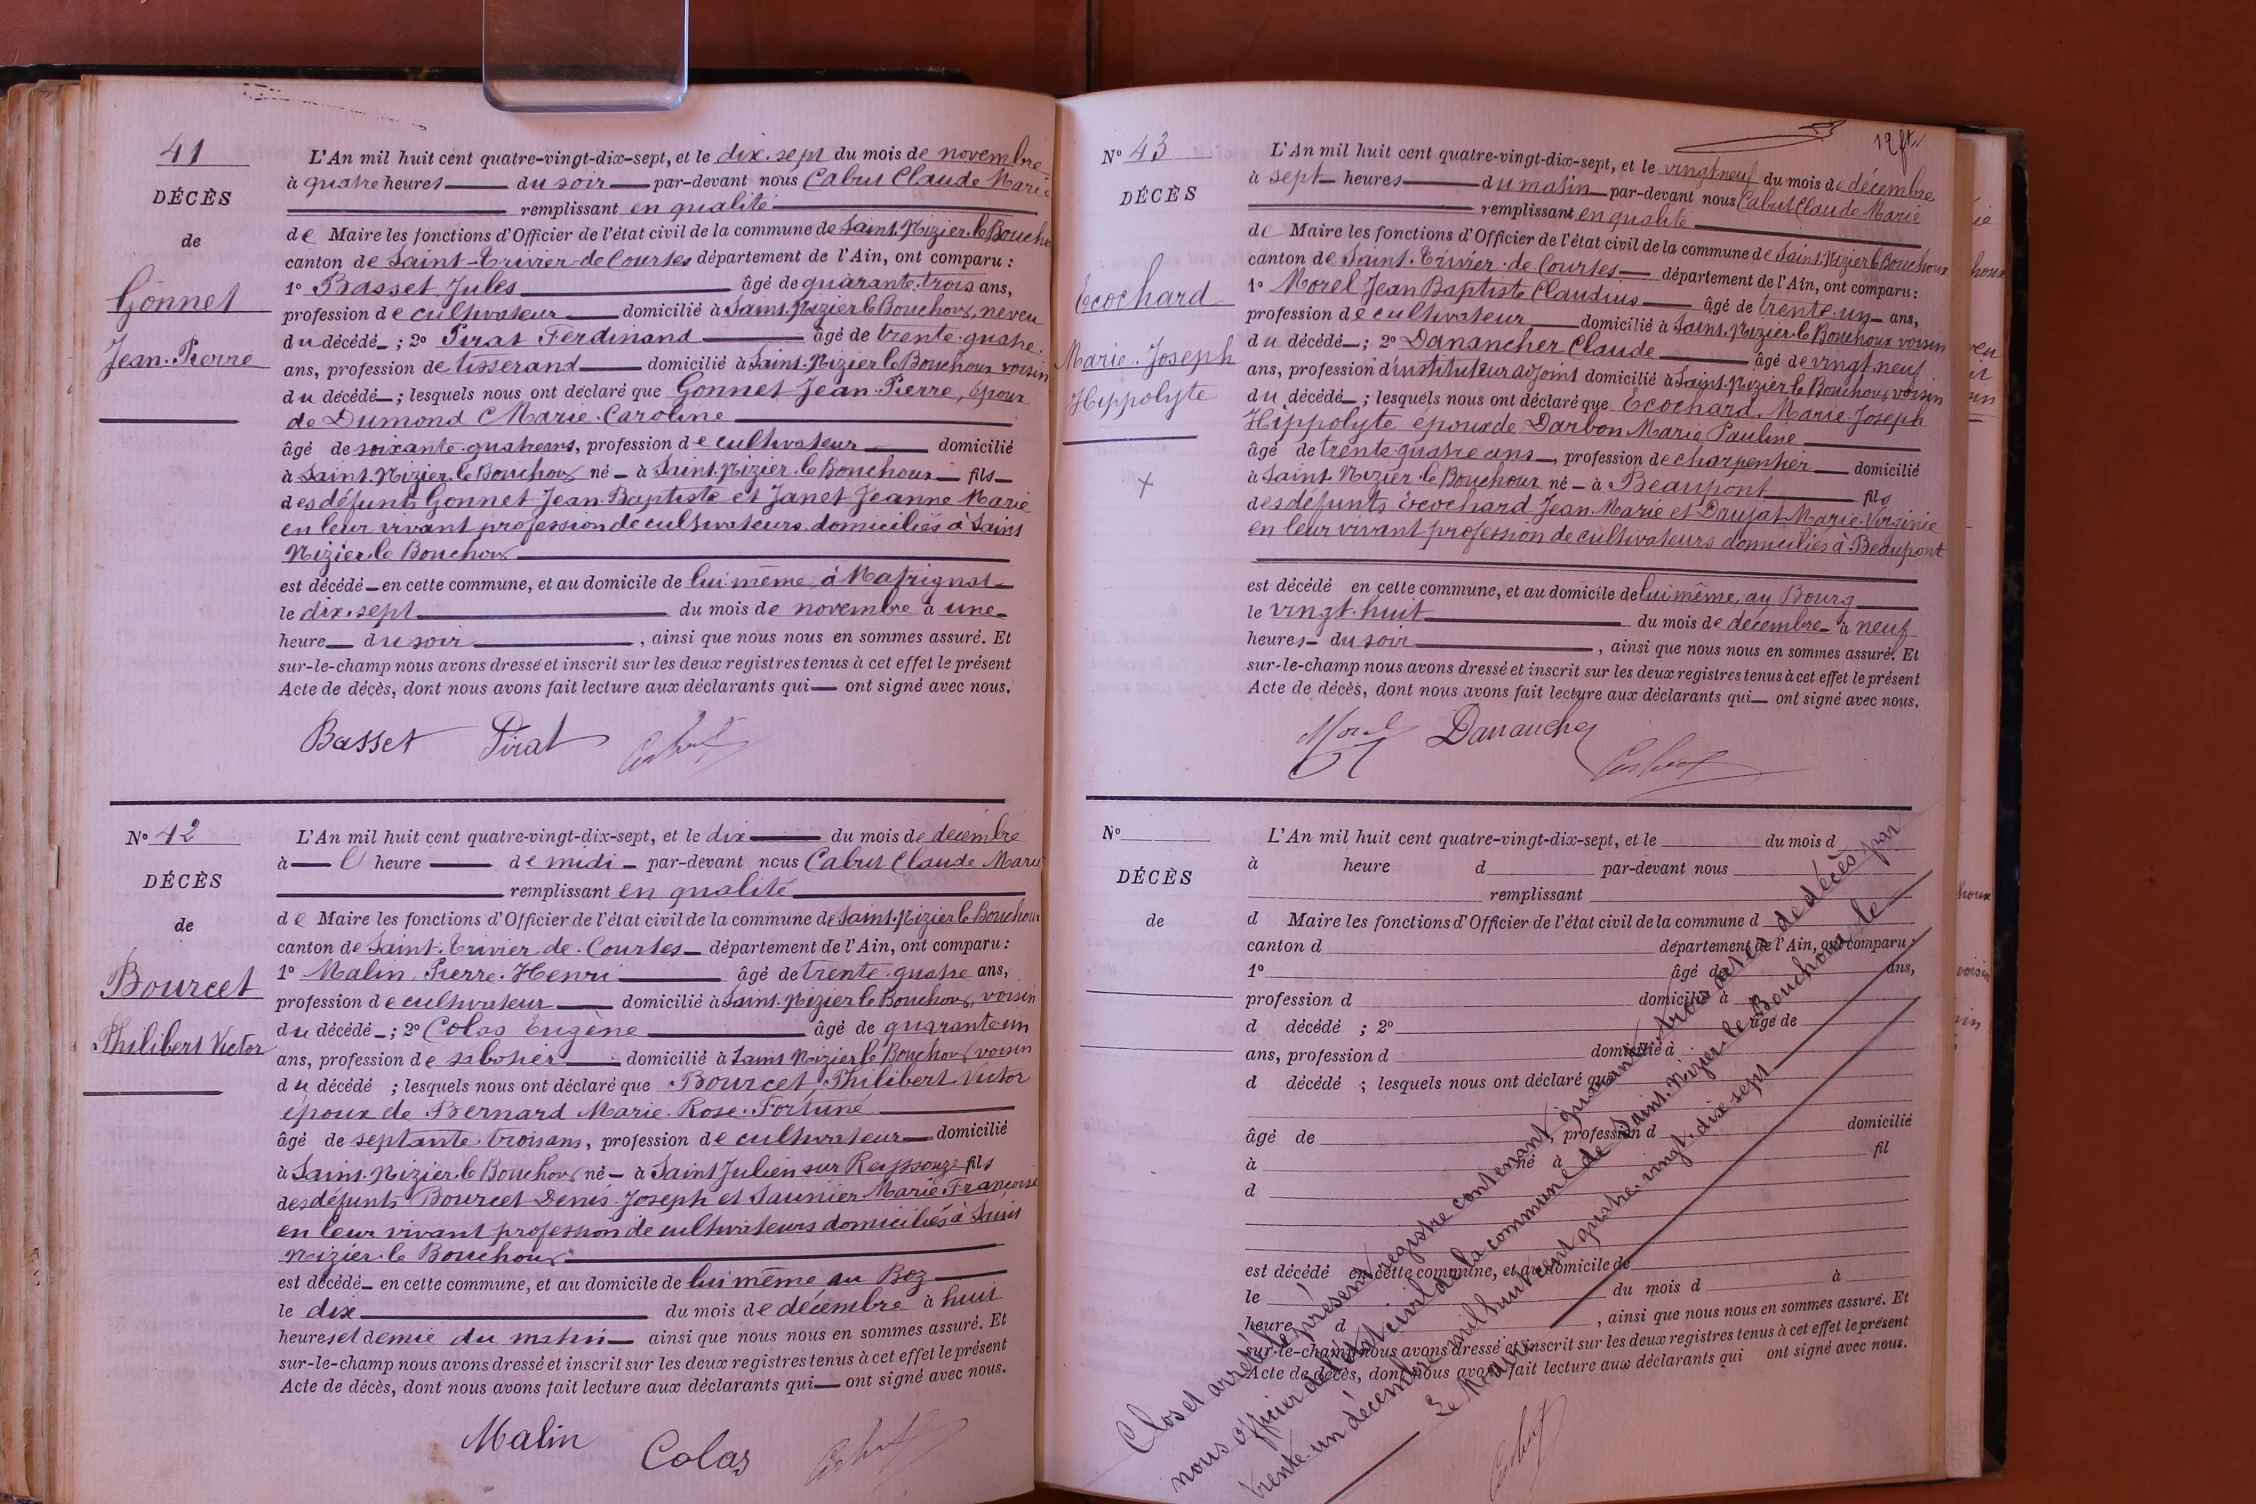 41
DÉCÈS
de
Gonnet
Jean-Pierre
L'An mil huit cent quatre-vingt-dix-sept, et le dix-sept du mois de novembre
à quatre heures du soir par-devant nous Cabut Claude Marie
remplissant en qualité
de Maire les fonctions d'Officier de l'état civil de la commune de Saint-Nizier-le-Bouchoux
canton de Saint-Trivier-de-Courtes département de l'Ain, ont comparu :
1° Basset Jules âgé de quarante-trois ans,
profession de cultivateur domicilié à Saint-Nizier-le-Bouchoux, neveu
du décédé ; 2° Pirat Ferdinand âgé de trente-quatre
ans, profession de tisserand domicilié à Saint-Nizier-le-Bouchoux voisin
du décédé ; lesquels nous ont déclaré que Gonnet Jean-Pierre, époux
de Dumond Marie-Caroline
âgé de soixante-quatre ans, profession de cultivateur domicilié
à Saint-Nizier-le-Bouchoux né à Saint-Nizier-le-Bouchoux fils
des défunts Gonnet Jean-Baptiste et Janet Jeanne Marie
en leur vivant profession de cultivateurs domiciliés à Saint
Nizier-le-Bouchoux
est décédé en cette commune, et au domicile de lui même à
le dix-sept du mois de novembre à une
heure du soir, ainsi que nous nous en sommes assuré. Et
sur-le-champ nous avons dressé et inscrit sur les deux registres tenus à cet effet le présent
Acte de décès, dont nous avons fait lecture aux déclarants qui ont signé avec nous.
Basset Pirat Cabut
N° 42
DÉCÈS
de
Bourcet
Philibert Victor
L'An mil huit cent quatre-vingt-dix-sept, et le dix du mois de décembre
à l heure de midi par-devant nous Cabut Claude Marie
remplissant en qualité
de Maire les fonctions d'Officier de l'état civil de la commune de Saint-Nizier-le-Bouchoux
canton de Saint-Trivier-de-Courtes département de l'Ain, ont comparu :
1° Malin Pierre-Henri âgé de trente-quatre ans,
profession de cultivateur domicilié à Saint-Nizier-le-Bouchoux, voisin
du décédé ; 2° Colas Eugène âgé de quarante un
ans, profession de sabotier domicilié à Saint Nizier le Bouchoux voisin
du décédé ; lesquels nous ont déclaré que Bourcet Philibert Victor
époux de Bernard Marie-Rose-Fortuné
âgé de septante-trois ans, profession de cultivateur domicilié
à Saint-Nizier-le-Bouchoux né à Saint Julien sur Reyssouze fils
des défunts Bourcet Denis-Joseph et Saunier Marie Françoise
en leur vivant profession de cultivateurs domiciliés à Saint
Nizier-le Bouchoux
est décédé en cette commune, et au domicile de lui même au Boz
le dix du mois de décembre à huit
heures et demie du matin ainsi que nous nous en sommes assuré. Et
sur-le-champ nous avons dressé et inscrit sur les deux registres tenus à cet effet le présent
Acte de décès, dont nous avons fait lecture aux déclarants qui ont signé avec nous.
Malin Colas Cabut
19 ft
N° 43
DÉCÈS
Ecochard
Marie-Joseph
Hippolyte
L'An mil huit cent quatre-vingt-dix-sept, et le vingt neuf du mois de décembre
à sept heures du matin par-devant nous Cabut Claude Marie
remplissant en qualité
de Maire les fonctions d'Officier de l'état civil de la commune de Saint-Nizier-le-Bouchoux
canton de Saint-Trivier-de-Courtes département de l'Ain, ont comparu :
1° Morel Jean Baptiste Claudius âgé de trente-un ans,
profession de cultivateur domicilié à Saint-Nizier-le-Bouchoux voisin
du décédé ; 2° Danancher Claude âgé de vingt-neuf
ans, profession d'instituteur adjoint domicilié à Saint-Nizier-le-Bouchoux voisin
du décédé ; lesquels nous ont déclaré que Ecochard Marie-Joseph
Hippolyte époux de Darbon Marie Pauline
âgé de trente-quatre ans, profession de charpentier domicilié
à Saint-Nizier-le-Bouchoux né à Beaupont fils
des défunts Ecochard Jean-Marie et Daujat Marie-Virginie
en leur vivant profession de cultivateurs domiciliés à Beaupont
est décédé en cette commune, et au domicile de lui même, au Bourg
le vingt-huit du mois de décembre à neuf
heures du soir, ainsi que nous nous en sommes assuré. Et
sur-le-champ nous avons dressé et inscrit sur les deux registres tenus à cet effet le présent
Acte de décès, dont nous avons fait lecture aux déclarants qui ont signé avec nous.
Morel Danancher Cabut
N°
DÉCÈS
de
L'An mil huit cent quatre-vingt-dix-sept, et le du mois d
à heure d par-devant nous
remplissant
d Maire les fonctions d'Officier de l'état civil de la commune d
canton d département de l'Ain, ont comparu :
1° âgé de ans,
profession d domicilié à
d décédé ; 2° âgé de
ans, profession d domicilié à
d décédé ; lesquels nous ont déclaré que
âgé de , profession d domicilié
à né à fil
d
est décédé en cette commune, et au domicile de
le du mois d à
heure d , ainsi que nous nous en sommes assuré. Et
sur-le-champ nous avons dressé et inscrit sur les deux registres tenus à cet effet le présent
Acte de décès, dont nous avons fait lecture aux déclarants qui ont signé avec nous.
Clos et arrêté le présent registre contenant quarante-trois actes de décès par
nous officier de l'état civil de la commune de Saint-Nizier-le-Bouchoux le
trente-un décembre mil huit cent quatre-vingt-dix-sept
Le Maire
Cabut